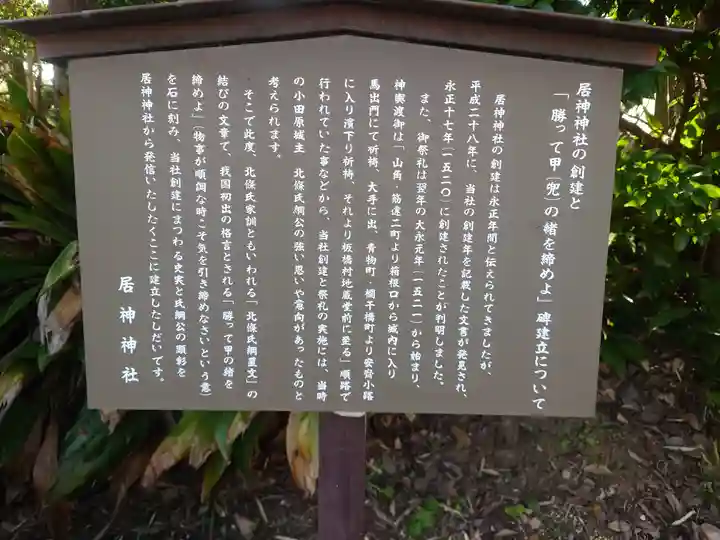 居神神社の創建と
「勝って甲(兜)の緒を締めよ」碑建立について
居神神社の創建は永正年間と伝えられてきましたが、
平成二十八年に、当社の創建年を記載した文書が発見され、
永正十七年(一五二〇)に創建されたことが判明しました。
また、御祭礼は翌年の大永元年(一五二一)から始まり、
神輿渡御は、「山角・筋違二町より箱根口から城内に入り
馬出門にて祈祷、大手に出、青物町・欄干橋町より安斎小路
に入り濱下り祈祷、それより板橋村地蔵堂前に至る」順路で
行われていた事などから、当社創建と祭礼の実施には、当時
の小田原城主 北條氏綱公の強い思いや意向があったものと
考えられます。
そこで此度、北條氏家訓ともいわれる「北條氏綱置文」の
結びの文章で、我国初出の格言とされる「勝って甲の緒を
締めよ」(物事が順調な時こそ気を引き締めなさいという意)
を石に刻み、当社創建にまつわる史実と氏綱公の願いを
居神神社から発信いたしたくここに建立したしだいです。
居神神社